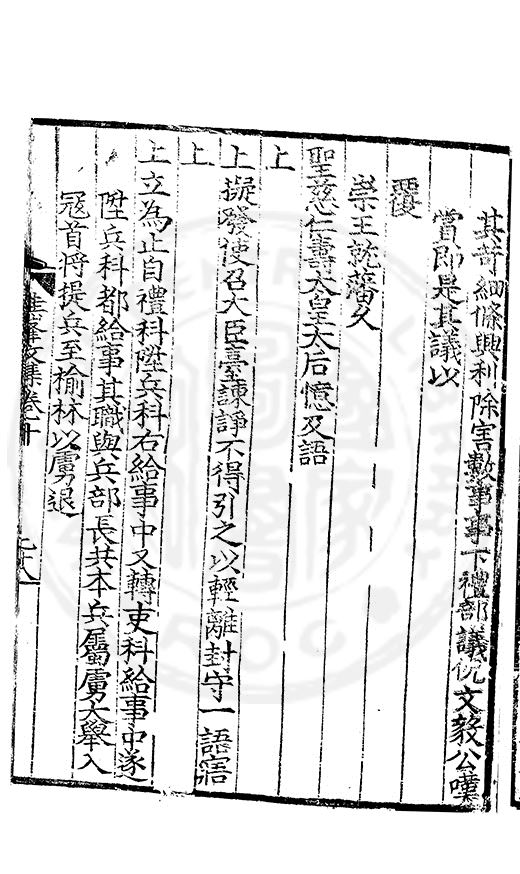 其奇細條興利除害數事事下禮部議倪文毅公嘆
賞即是其議以
覆
崇王就藩久
聖慈仁壽太皇太后憶及語
上
上擬發使召大臣臺諫諍不得引之以輕離封守一語寤
上
上立為止自禮科陞兵科右給事中又轉吏科給事中遂
陞兵科都給事其職與兵部長共本兵屬虜大舉入
冦首將提兵至榆林以虜退
峯文集卷十